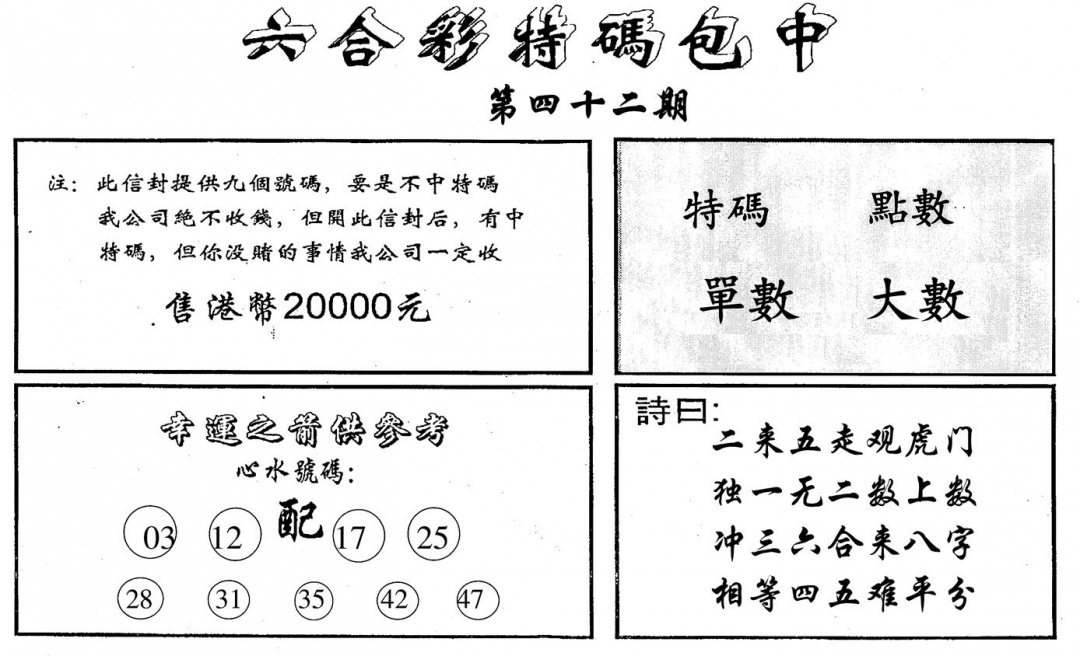 六合彩特碼包中
第四十二期
注：此信封提供九個號碼，要是不中特碼
我公司絶不收錢，但開此信封后，有中
特碼，但你没賭的事情我公司一定收
售港幣20000元
特碼 點數
單數 大數
幸運之箭供參考
心水號碼：
配
03 12 17 25
28 31 35 42 47
詩曰：
二来五走观虎门
独一无二数上数
冲三六合来八字
相等四五难平分